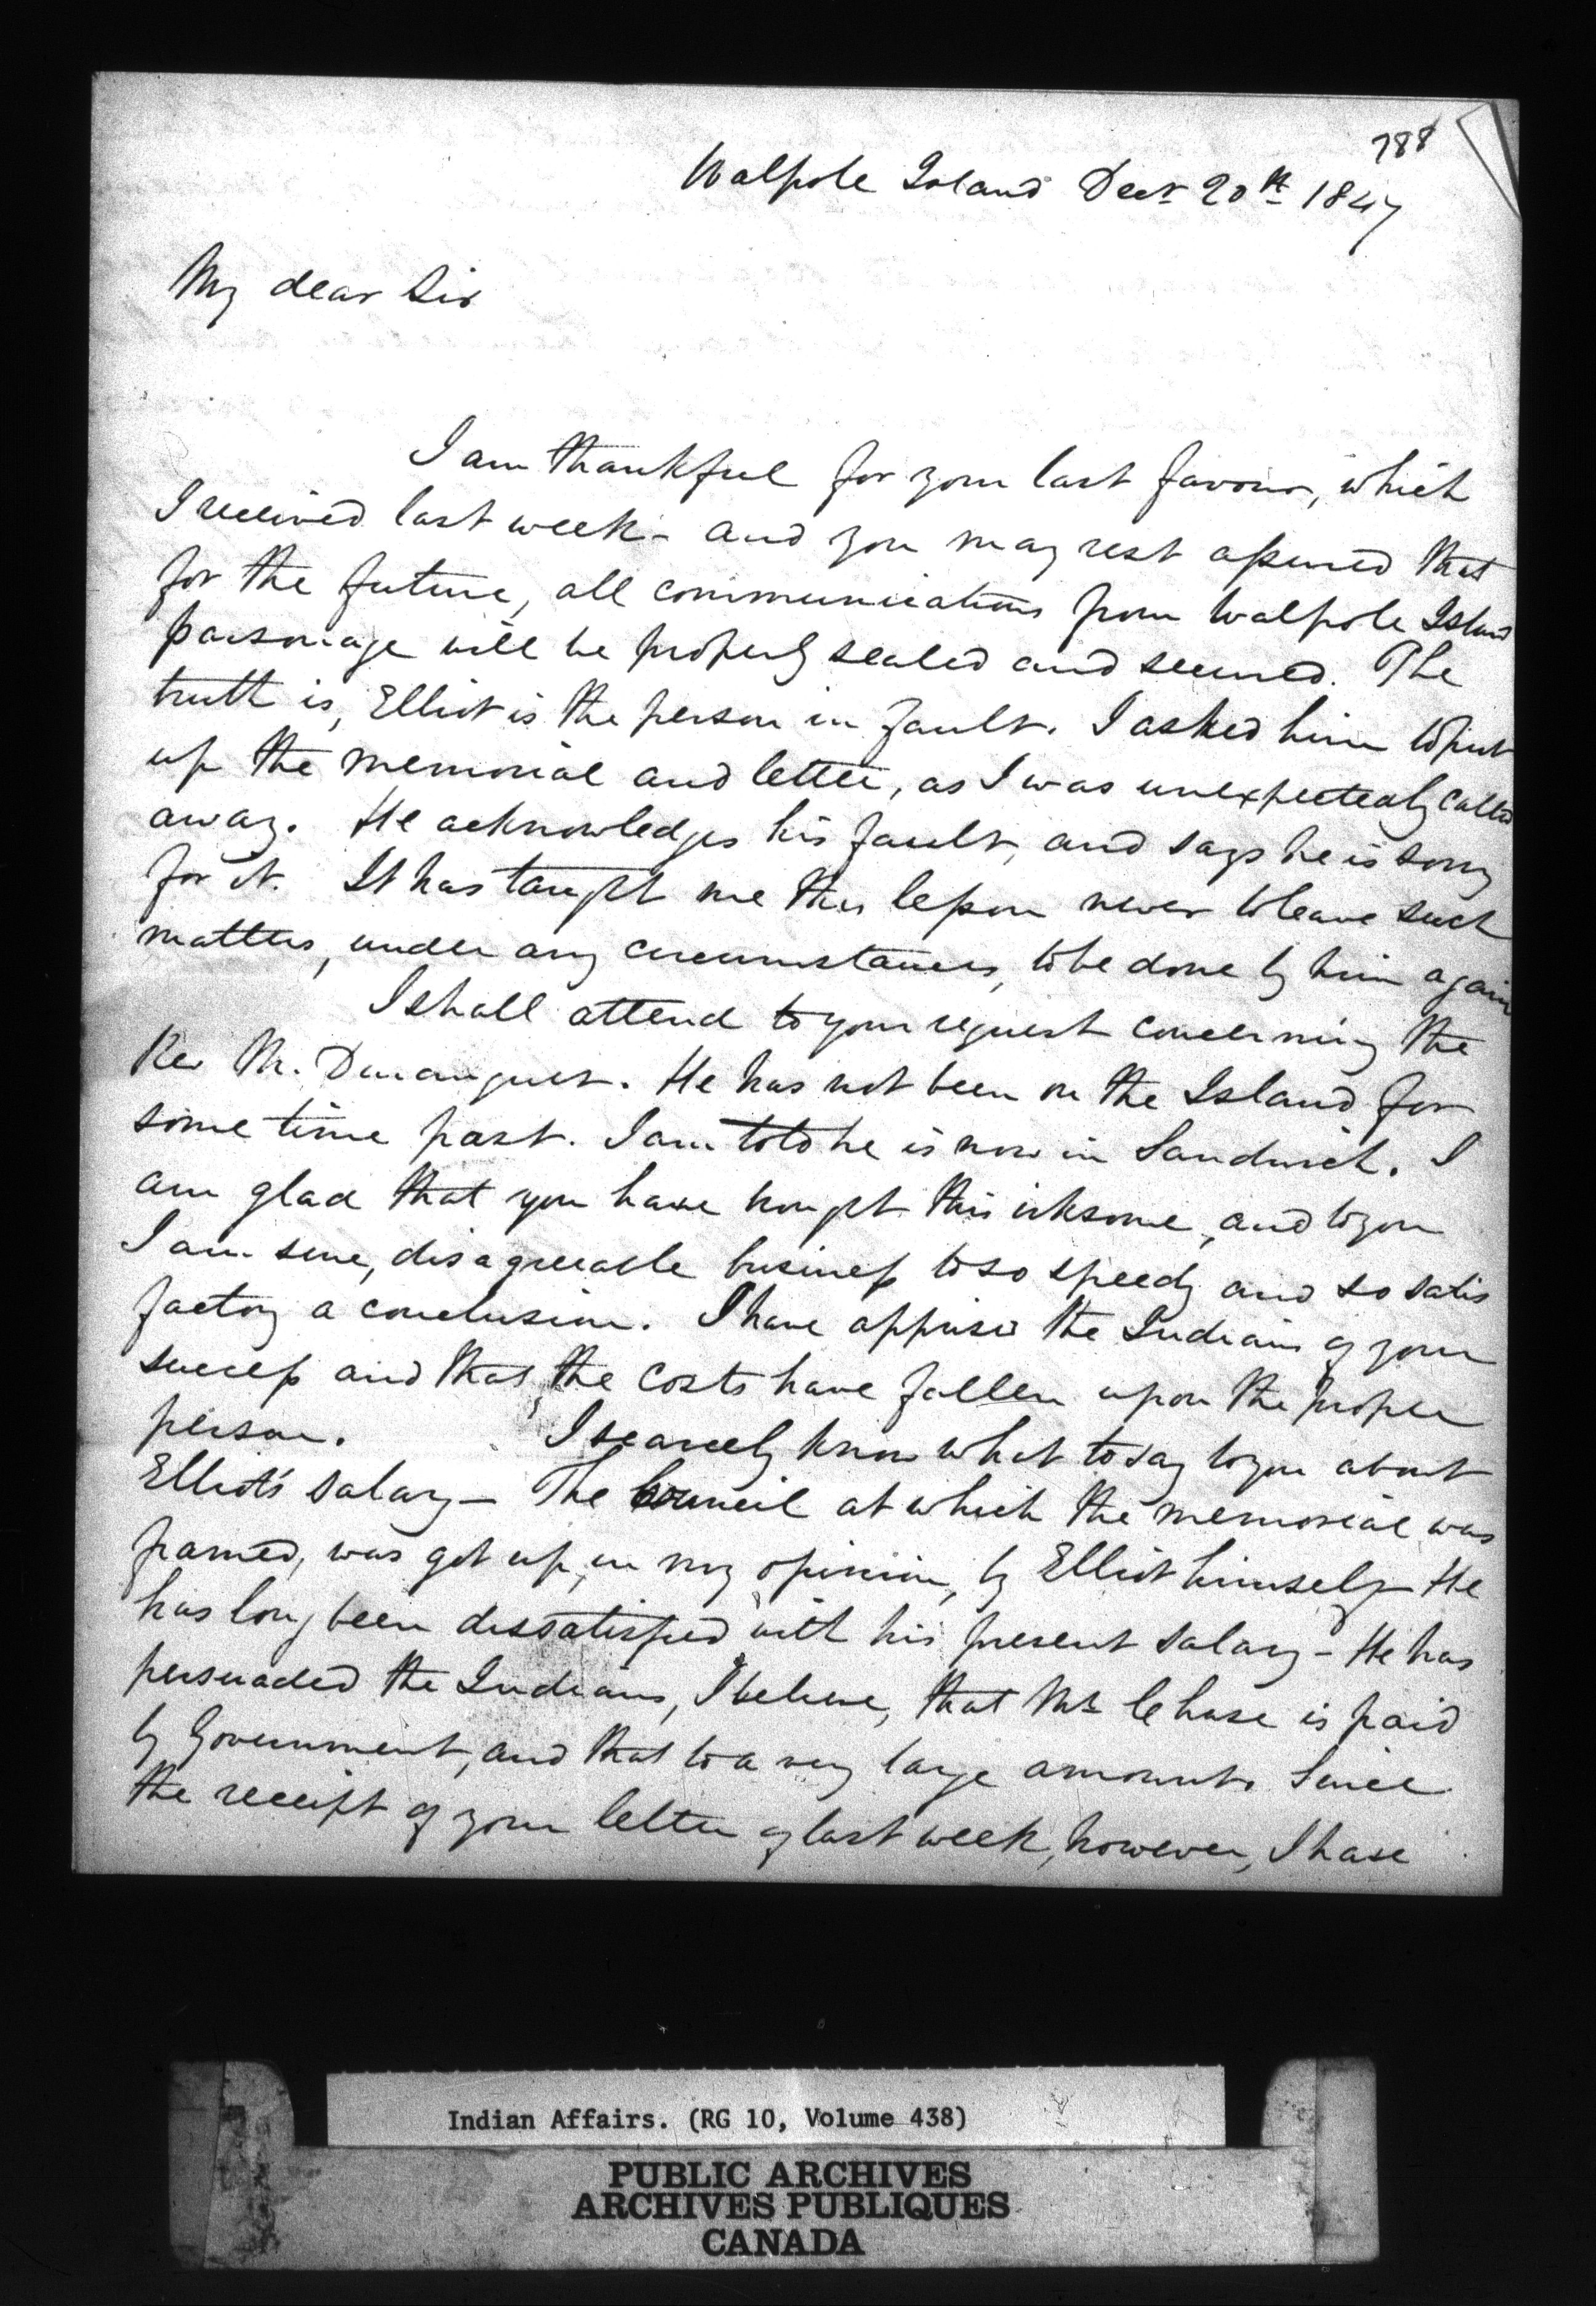 788
Walpole Island Decr 20th 1847
My dear Sir
I am thankful for your last favour, which
I received last week - and you may rest assured that
for the future, all communications from Walpole Island
parsonage will be properly sealed and secured. The
truth is, Elliot is the person in fault. I asked him to put
up the memorial and letter, as I was unexpectedly called
away. He acknowledges his fault, and says he is sorry
for it. It has taught me this lesson never to leave such
matters, under any circumstances, to be done by him again
I shall attend to your request concerning the
Rev Mr. Duranquet. He has not been on the Island for
some time past. I am told he is now in Sandwich. I
am glad that you have brought this irksome, and to you
I am sure, disagreeable business to so speedy and so satis
factory a conclusion. I have apprised the Indians of your
success and that the costs have fallen upon the proper
person. I scarcely know what to say to you about
Elliot's salary - The Council at which the memorial was
framed, was got up, in my opinion, by Elliot himself - He
has long been dissatisfied with his present salary - He has
persuaded the Indians, I believe, that Mr Chase is paid
by Government, and that to a very large amount. Since
the receipt of your letter of last week, however, I have
Indian Affairs. (RG 10, Volume 438)
PUBLIC ARCHIVES
ARCHIVES PUBLIQUES
CANADA